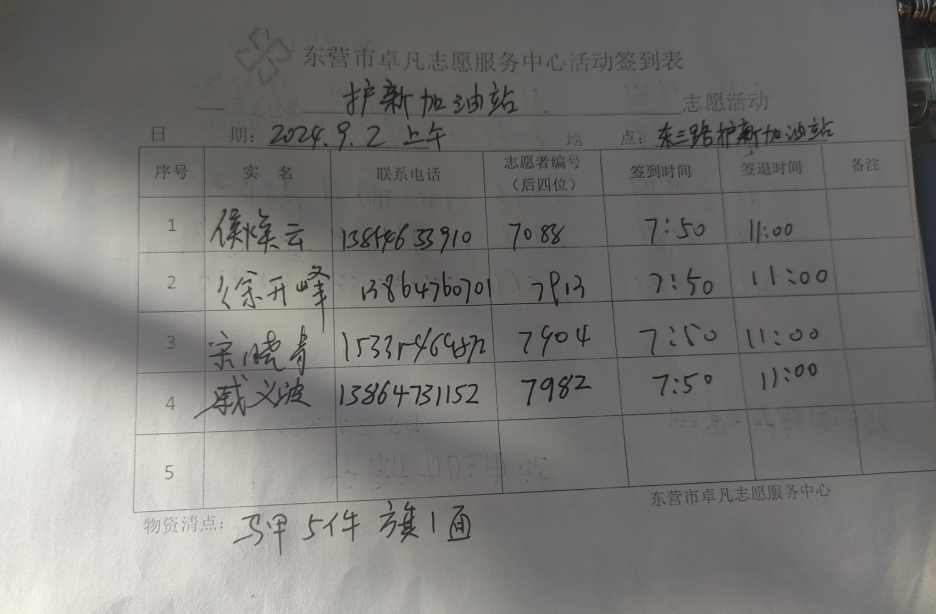 东营市卓凡志愿服务中心活动签到表
护新加油站 志愿活动
日 期: 2024.9.2 上午 地 点: 东三路护新加油站
序号 实 名 联系电话 志愿者编号(后四位) 签到时间 签退时间 备注
1 侯焕云 13854633910 7088 7:50 11:00
2 徐开峰 13864760701 7913 7:50 11:00
3 宋晓青 7904 7:50 11:00
4 戴义波 13864731152 7982 7:50 11:00
5
东营市卓凡志愿服务中心
物资清点: 马甲5件 旗1面